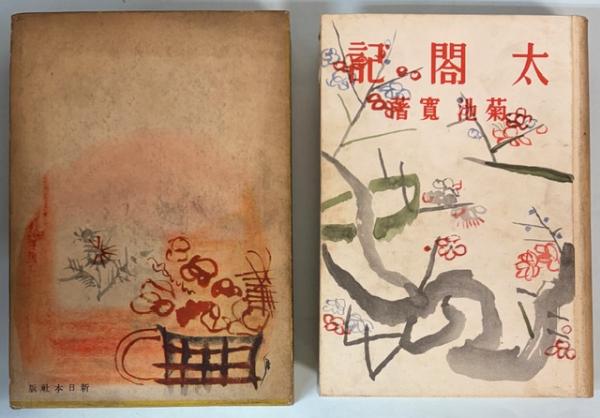 太閤記
菊池寛著
新日本社版